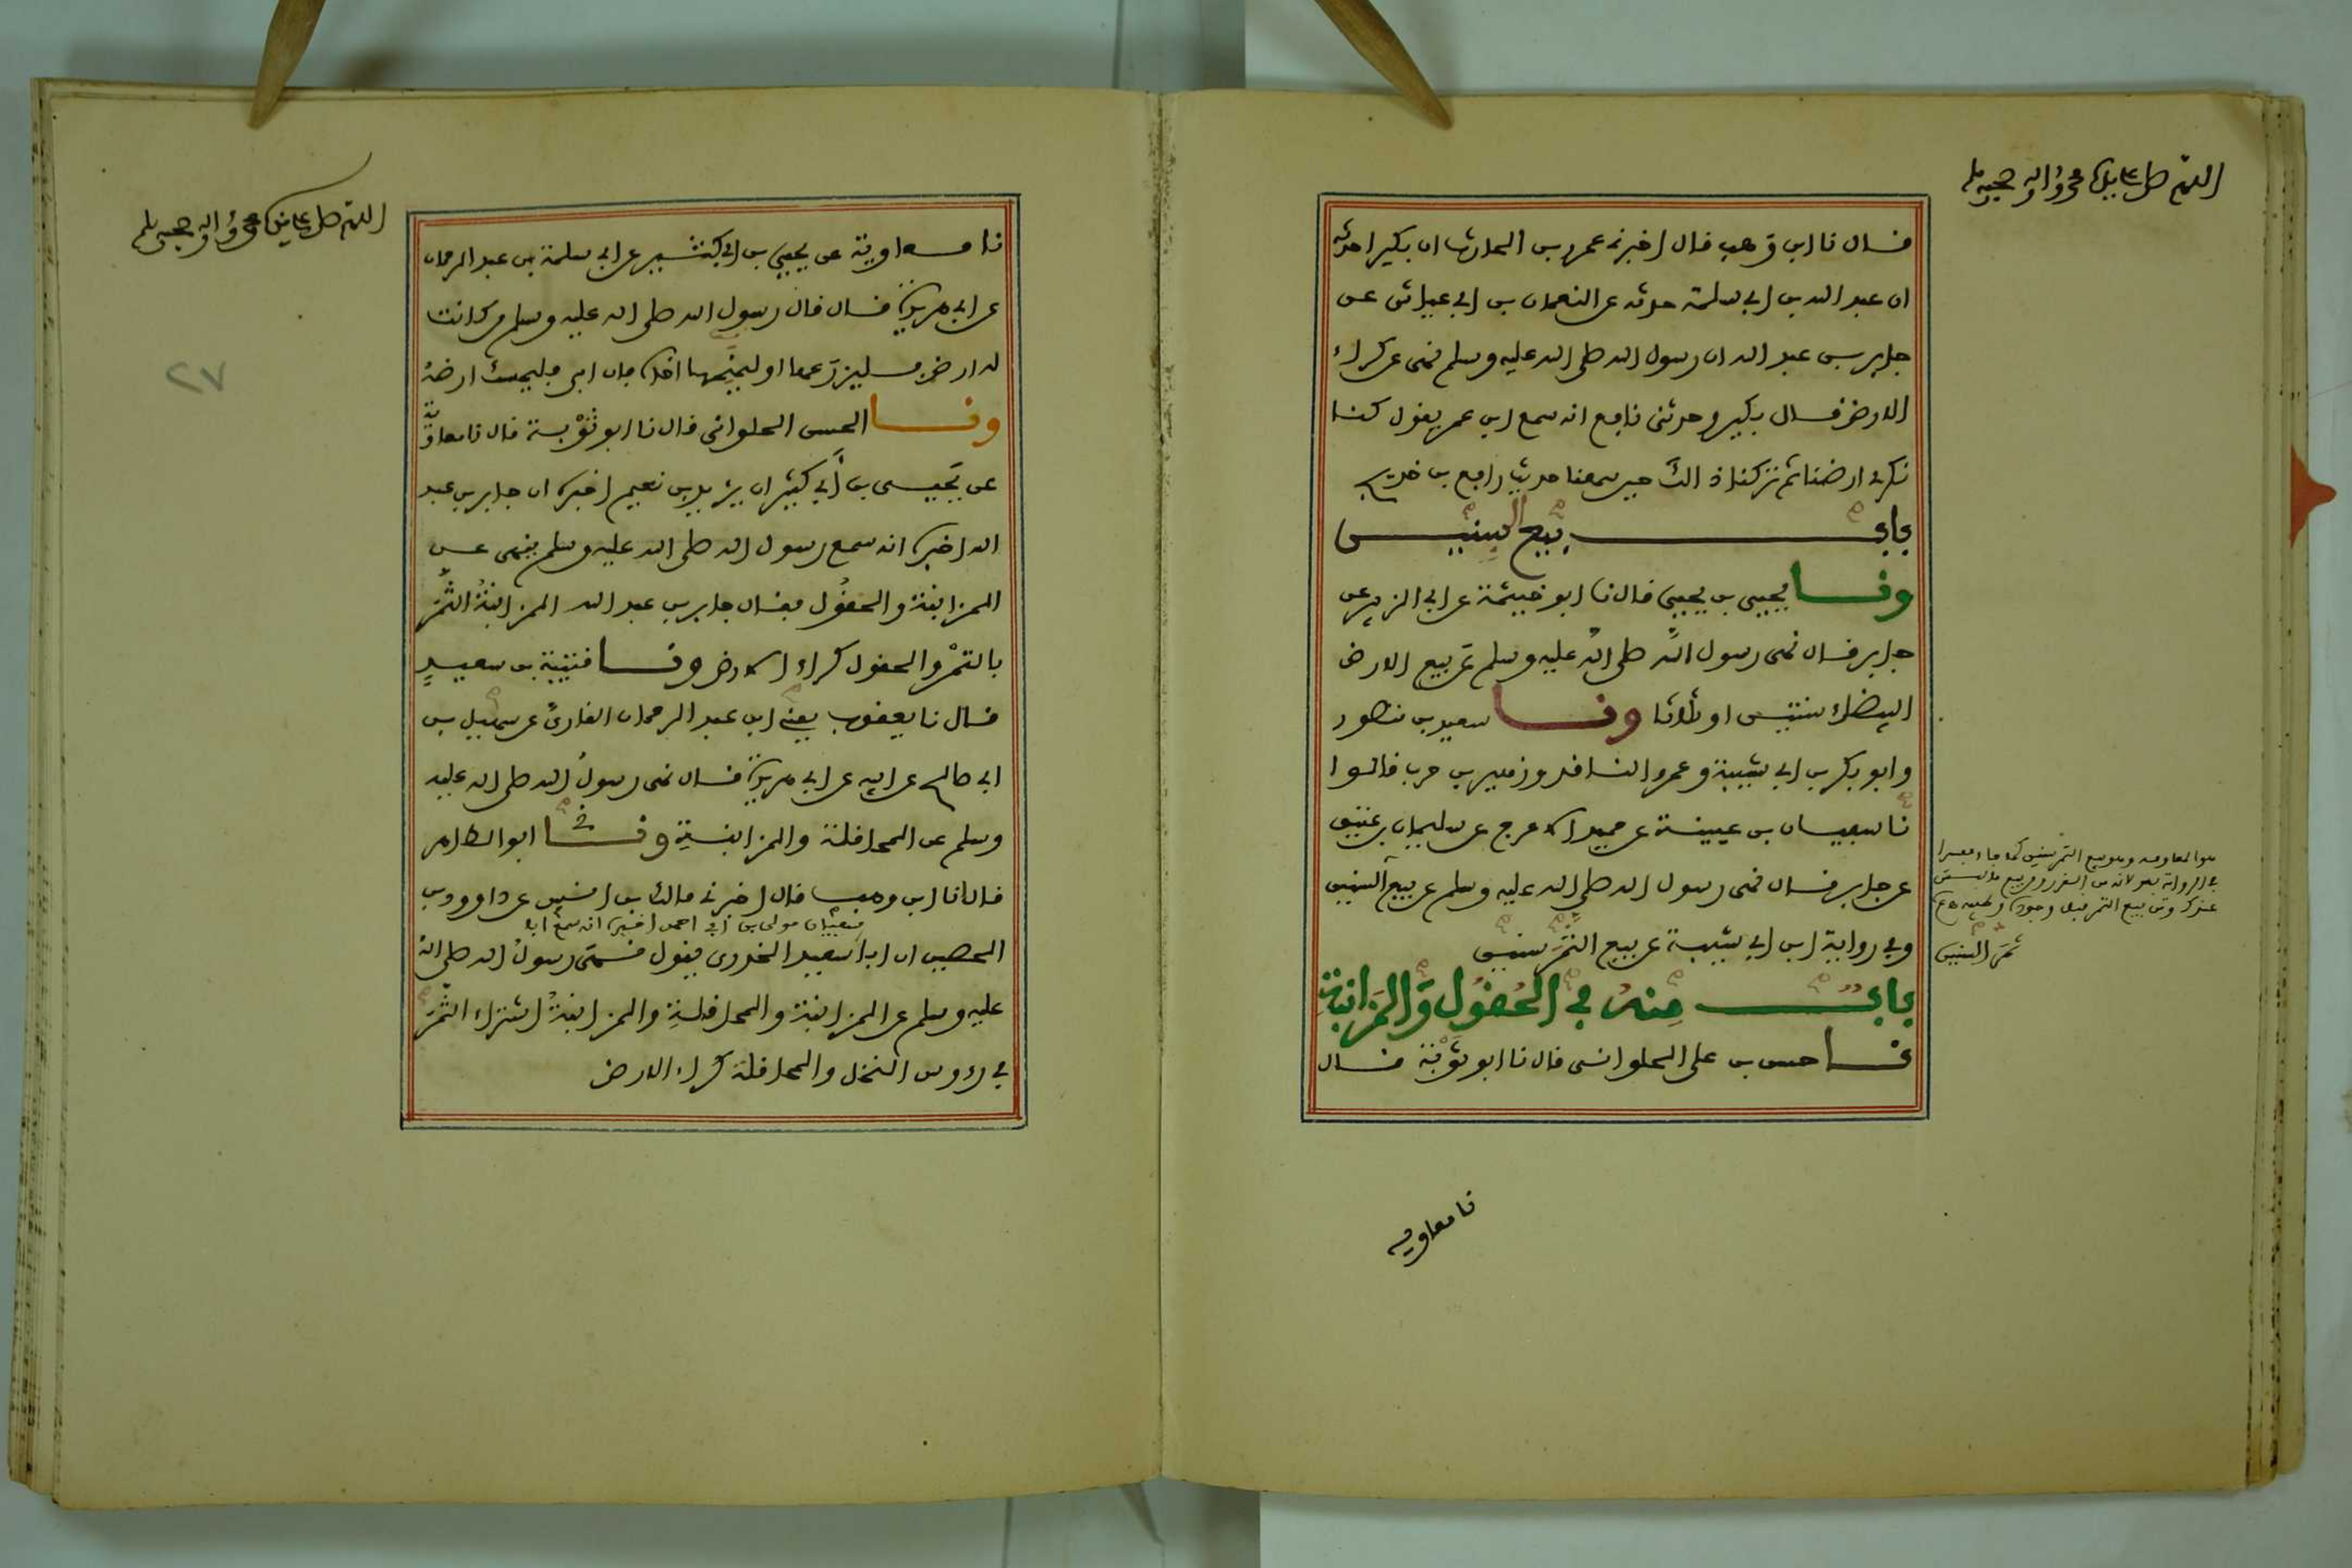 اللهم صل على سيدنا محمد واله وصحبه وسلم
فال نا ابن وهب فال اخبرني عمرو بن الحارث ان بكيرا حدثه
ان عبد الله بن ابي سلمة حدثه عن النعمان بن ابي عياش عن
جابر بن عبد الله ان رسول الله صلى الله عليه وسلم نهى عن كراء
الارض فال بكير وحدثني نابع انه سمع ابن عمر يفول كنا
نكري ارضنا ثم تركنا ذالك حين سمعنا حديث رابع بن خديج
باب بيع السنين
ونا يحيى بن يحيى فال نا ابو خيثمة عن ابي الزبير عن
جابر فال نهى رسول الله صلى الله عليه وسلم عن بيع الارض
البيضاء سنتين او ثلاثا ونا سعيد بن منصور
وابو بكر بن ابي شيبة وعمرو النافد وزهير بن حرب فالوا
نا سبيان بن عيينة عن حميد الاعرج عن سليمان بن عتيق
عن جابر فال نهى رسول الله صلى الله عليه وسلم عن بيع السنين
وبي رواية ابن ابي شيبة عن بيع الثمر سنين
باب منه بي الحفول والمزابنة
نا حسن بن علي الحلواني فال نا ابو توبة فال
هو المعاومة وهو بيع الثمر سنين كما جاء مبسرا
ثمر السنين
نا معاوية
اللهم صل على سيدنا محمد واله وصحبه وسلم
٢٧
نا معاوية عن يحيى بن ابي كثير عن ابي سلمة بن عبد الرحمان
عن ابي هريرة فال فال رسول الله صلى الله عليه وسلم من كانت
له ارض بليزرعها او ليمنحها اخاه بان ابى بليمسك ارضه
ونا الحسن الحلواني فال نا ابو توبة فال نا معاوية
عن يحيى بن أبي كثير ان يزيد بن نعيم اخبره ان جابر بن عبد
الله اخبره انه سمع رسول الله صلى الله عليه وسلم ينهى عن
المزابنة والحفول بفال جابر بن عبد الله المزابنة الثمر
بالتمر والحفول كراء الارض ونا فتيبة بن سعيد
فال نا يعفوب يعني ابن عبد الرحمان الفاري عن سهيل بن
ابي صالح عن ابيه عن ابي هريرة فال نهى رسول الله صلى الله عليه
وسلم عن المحافلة والمزابنة ونا ابو الطاهر
فال انا ابن وهب فال اخبرني مالك بن انس عن داوود بن
الحصين ان ابا سعيد الخدري يفول نهى رسول الله صلى الله
سبيان مولى بن أبي احمد اخبره انه سمع ابا
عليه وسلم عن المزابنة والمحافلة والمزابنة اشتراء الثمر
بي رءوس النخل والمحافلة كراء الارض